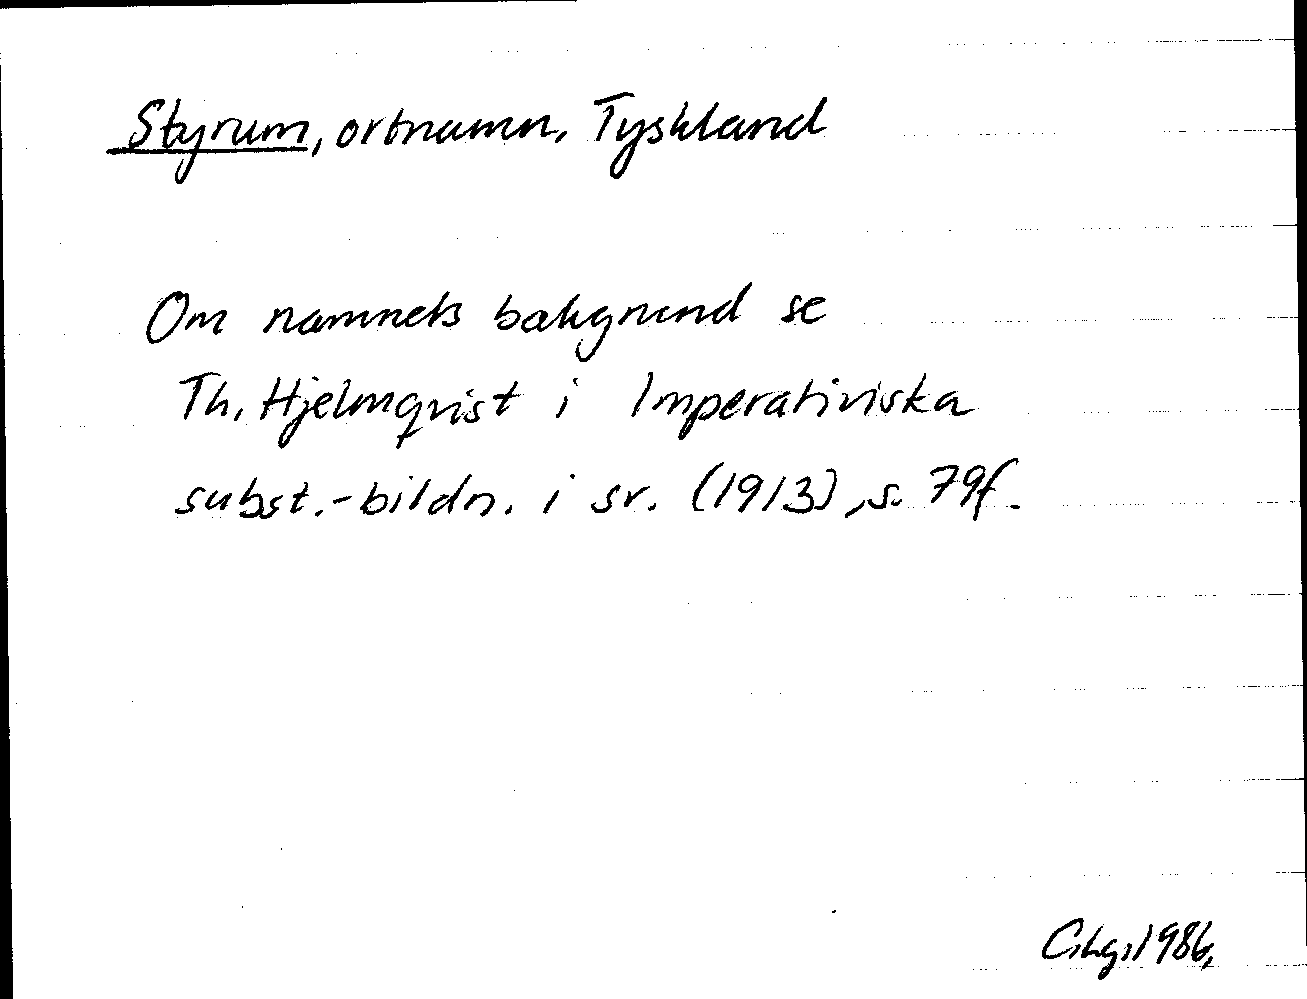 Styrum, ortnamn, Tyskland
Om namnets bakgrund se
Th. Hjelmqvist i Imperativiska
subst.-bildn. i sv. (1913), s. 79f.
1986,